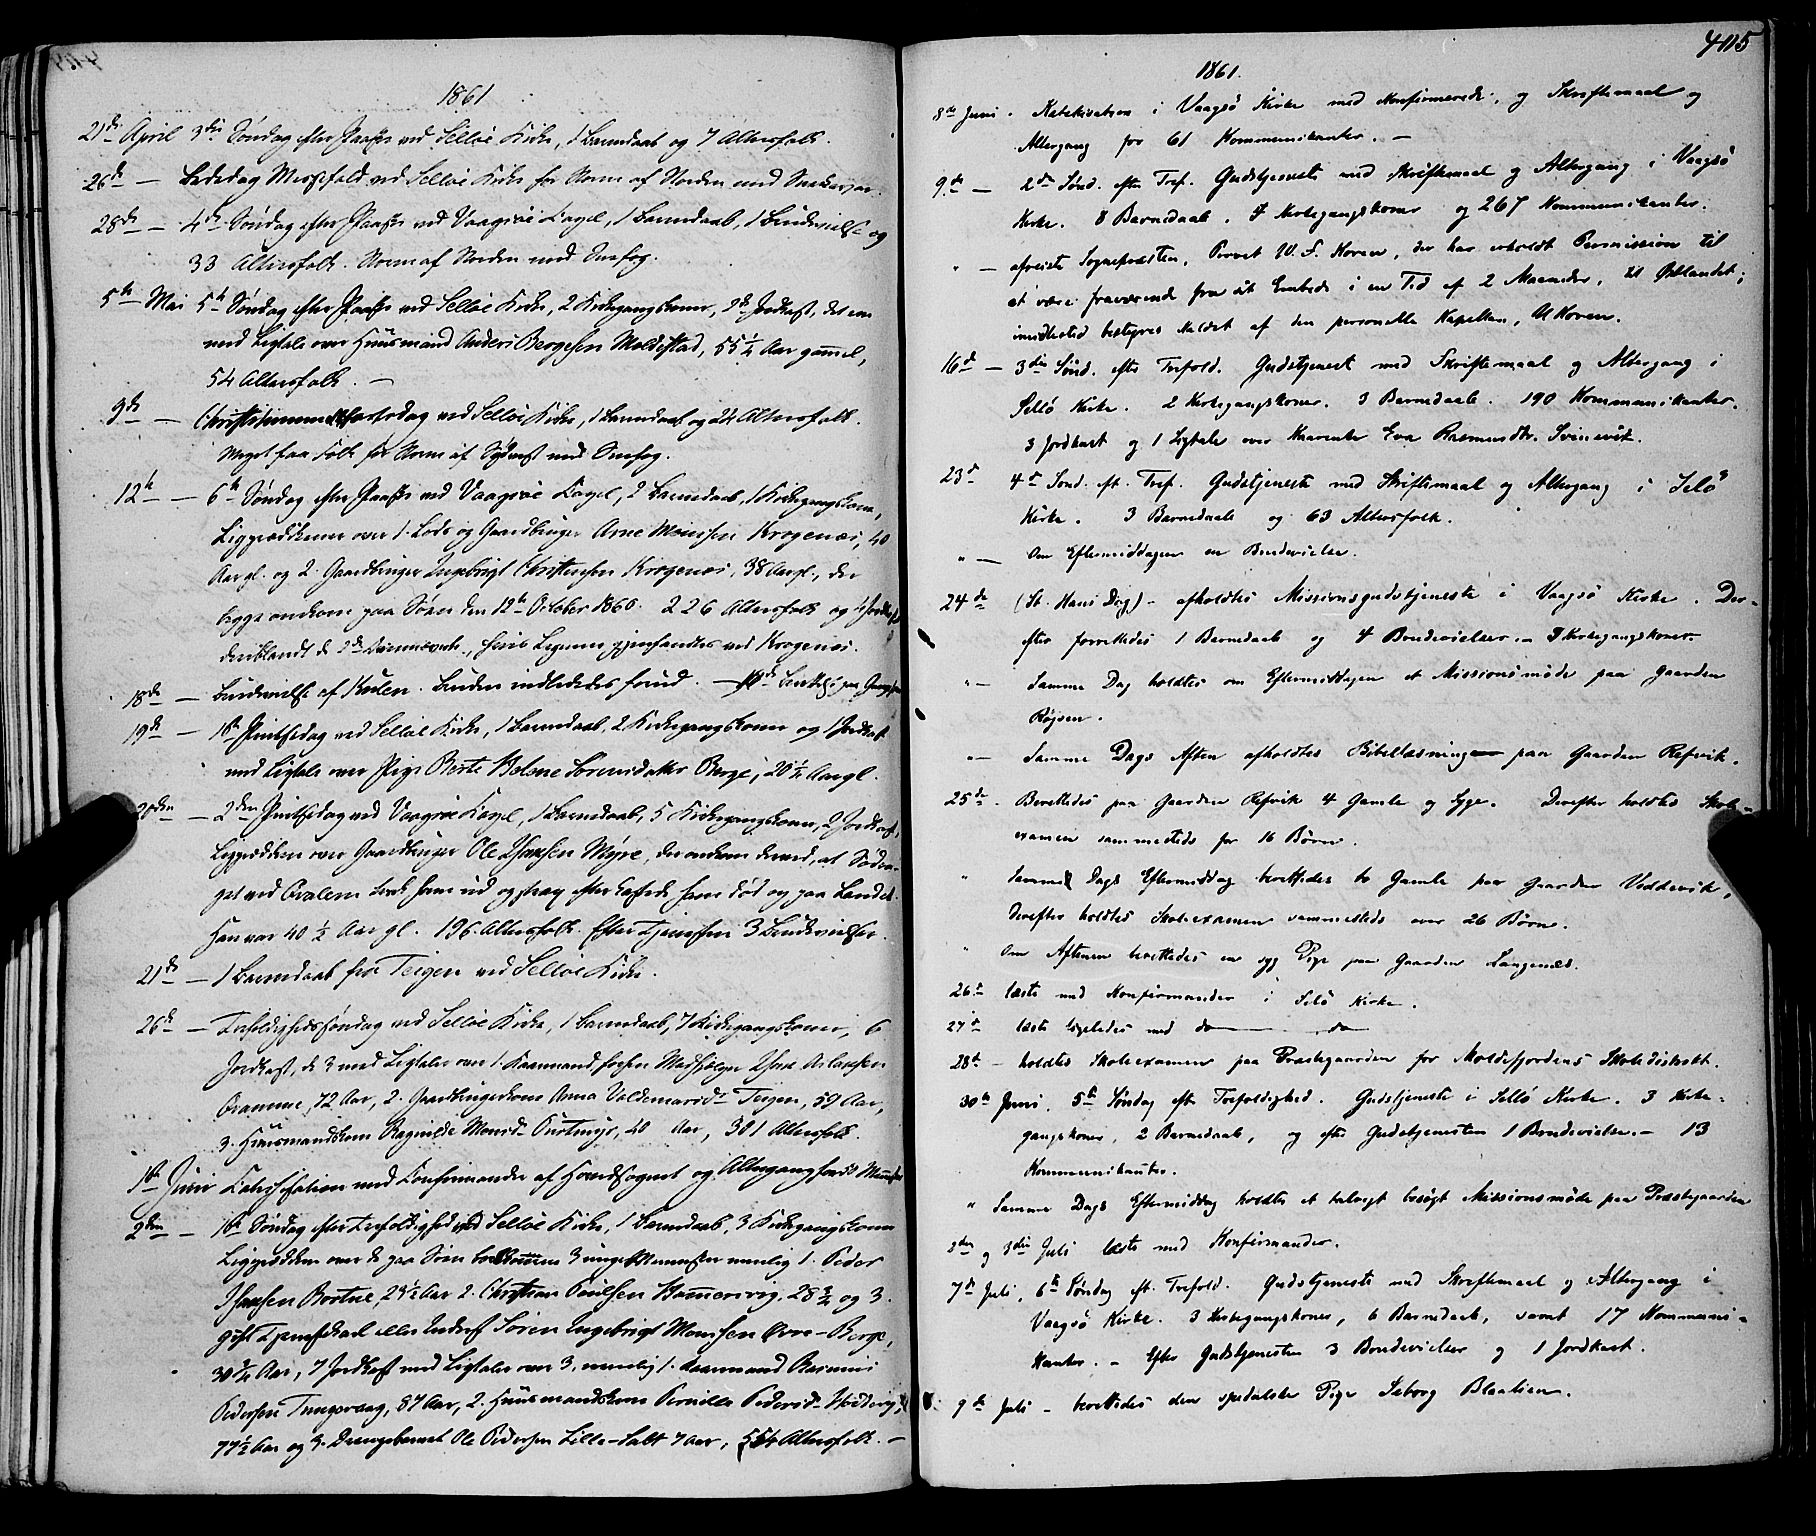 1861
21de April 3die Søndag efter Paaske ved Selløe Kirke, 1 Barnedaab og 7 Altersfolk.
26de — Bededag Messefald ved Selløe Kirke for Storm af Norden med
28de — 4de Søndag efter Paaske ved Vaagsøe Capel, 1 Barnedaab, 1 Brudevielse og
33 Altersfolk. Storm af Norden med Sneefog.
5te Mai 5te Søndag efter Paaske ved Selløe Kirke, 2 Kirkegangskoner, 2de Jordkast, det ene
med Ligtale over Huusmand Anders Børgesen Moldestad, 55 1/2 Aar gammel,
54 Altersfolk. —
9de — Christi Himmelfartsdag ved Selløe Kirke, 1 Barnedaab og 24 Altersfolk.
Meget faa Folk for Storm af Sydvest med Sneefog.
12te — 6te Søndag efter Paaske ved Vaagsøe Capel, 2 Barnedaab, 1 Kirkegangskone,
Ligprædikener over 1. Lods og Gaardbruger Arne Monssen Krogenæs, 40
Aar gl. og 2. Gaardbruger Ingebrigt Christensen Krogenæs, 38 Aar gl., der
begge omkom paa Søen den 12te October 1860. 226 Altersfolk og 4 Jordkast
deriblandt de 2de, hvis Ligene gjenfandtes ved Krogenæs.
18de — Brudevielse af Kulen. Bruden indlededes forud. —
19de — 1ste Pintsedag ved Selløe Kirke, 1 Barnedaab, 2 Kirkegangskoner og 1 Jordkast
med Ligtale over Pige Berte Helene Sørensdatter Berge, 20 1/2 Aar gl.
20den — 2den Pintsedag ved Vaagsøe Capel, 1 Barnedaab, 5 Kirkegangskoner, 2 Jordkast,
Ligprædiken over Gaardbruger Ole Hansen Myre, der omkom derved, at
ved Hvalen trak ham ud og strax efter kastede ham død op paa Landet.
Han var 40 1/2 Aar gl. 196 Altersfolk. Efter Tjenesten 3 Brudevielser.
21de — 1 Barnedaab fra Teigen ved Selløe Kirke.
26de — Trefoldighedssøndag ved Selløe Kirke, 1 Barnedaab, 7 Kirkegangskoner, 6
Jordkast, de 3 med Ligtale over 1. Kaarmand, forhen Medhjelper
72 Aar, 2. Gaardbrugerkone Anna Valdemarsdr Teigen, 59 Aar,
3. Huusmandskone Ragnilde Monsdr 40 Aar, 301 Altersfolk.
1ste Juni Catechisation med Confirmander af Hovedsognet og Altergang for
2den — 1ste Søndag efter Trefoldighed ved Selløe Kirke, 1 Barnedaab, 3 Kirkegangskoner
Ligprædiken over de paa Søen omkomne 3 unge Mennesker nemlig 1. Peder
Hansen Bortne, 24 1/2 Aar 2. Christian Poulsen Hammersvig, 28 3/4 og 3.
Gift Tjenestekarl eller Inderst Søren Ingebrigt Monssen Øvre-Berge,
30 3/4 Aar, 7 Jordkast med Ligtaler over 3, nemlig 1. Kaarmand Rasmus
Pedersen Tungevaag, 87 Aar, 2. Huusmandskone Pernille Pedersdr
77 1/2 Aar og 3. Drengebarnet Ole Pedersen Lille-Salt 7 Aar, 554 Altersfolk. —
405
1861.
8de Juni. Katekisation i Vaagsö Kirke med Konfirmerede, og Skriftemaal og
Altergang for 61 Kommunikanter. —
9de — 2den Sönd. efter Tref. Gudstjeneste med Skriftemaal og Altergang i Vaagsö
Kirke. 8 Barnedaab. 7 Kirkegangskoner og 267 Kommunikanter.
" — afreiste Sognepræsten, Provst W. F. Koren, der har erholdt Permission til
at være fraværende fra sit Embede i en Tid af 2 Maaneder, til Østlandet;
imidlertid bestyres Kaldet af den personelle Kapellan, U Koren.
16de — 3die Sönd. efter Trefold. Gudstjeneste med Skriftemaal og Altergang i
Sellö Kirke. 2 Kirkegangskoner. 3 Barnedaab. 190 Kommunikanter.
3 Jordkast og 1 Ligtale over Kaarenke Eva Rasmusdtr. Svinevik.
23de 4de Sönd. eft. Tref. Gudstjeneste med Skriftemaal og Altergang i Selö
Kirke. 3 Barnedaab og 63 Altersfolk.
" — Om Eftermiddagen en Brudevielse.
24de (St. Hans Dag) - afholdtes Missionsgudstjeneste i Vaagsö Kirke. Der-
efter forrettedes 1 Barnedaab og 4 Brudevielser. — 3 Kirkegangskoner
" — Samme Dag holdtes om Eftermiddagen et Missionsmöde paa Gaarden
Röjsen.
" — Samme Dags Aften afholdtes Bibellæsning paa Gaarden Refvik.
25de. Berettedes paa Gaarden Refvik 4 Gamle og Syge. Derefter holdtes Skole-
examen sammesteds for 16 Börn.
" Samme Dags Eftermiddag berettedes to Gamle paa Gaarden Veddevik,
derefter holdtes Skoleexamen sammesteds over 26 Börn.
" Om Aftenen berettedes en syg Pige paa Gaarden Langenæs.
26de læste med Konfirmander i Selö Kirke.
27de læste ligeledes med do — do
28de — holdtes Skoleexamen paa Præstegaarden for Moldefjordens Skoledistrikt.
30te Juni. 5te Söndag eft. Trefoldighed. Gudstjeneste i Sellö Kirke. 3 Kirke-
gangskoner, 2 Barnedaab, og efter Gudstjenesten 1 Brudevielse. — 13
Kommunikanter.
" Samme Dags Eftermiddag holdtes et talrigt besögt Missionsmöde paa Præstegaarden
2den og 3die Juli læste med Konfirmander.
7de Juli. 6te Söndag eft. Trefold. Gudstjeneste med Skriftemaal og Altergang i
Vaagsö Kirke. 3 Kirkegangskoner, 6 Barnedaab, samt 17 Kommuni-
kanter. — Efter Gudstjenesten 3 Brudevielser og 1 Jordkast.
9de Juli — berettedes den spedalske Pige Seborg Blaalien.